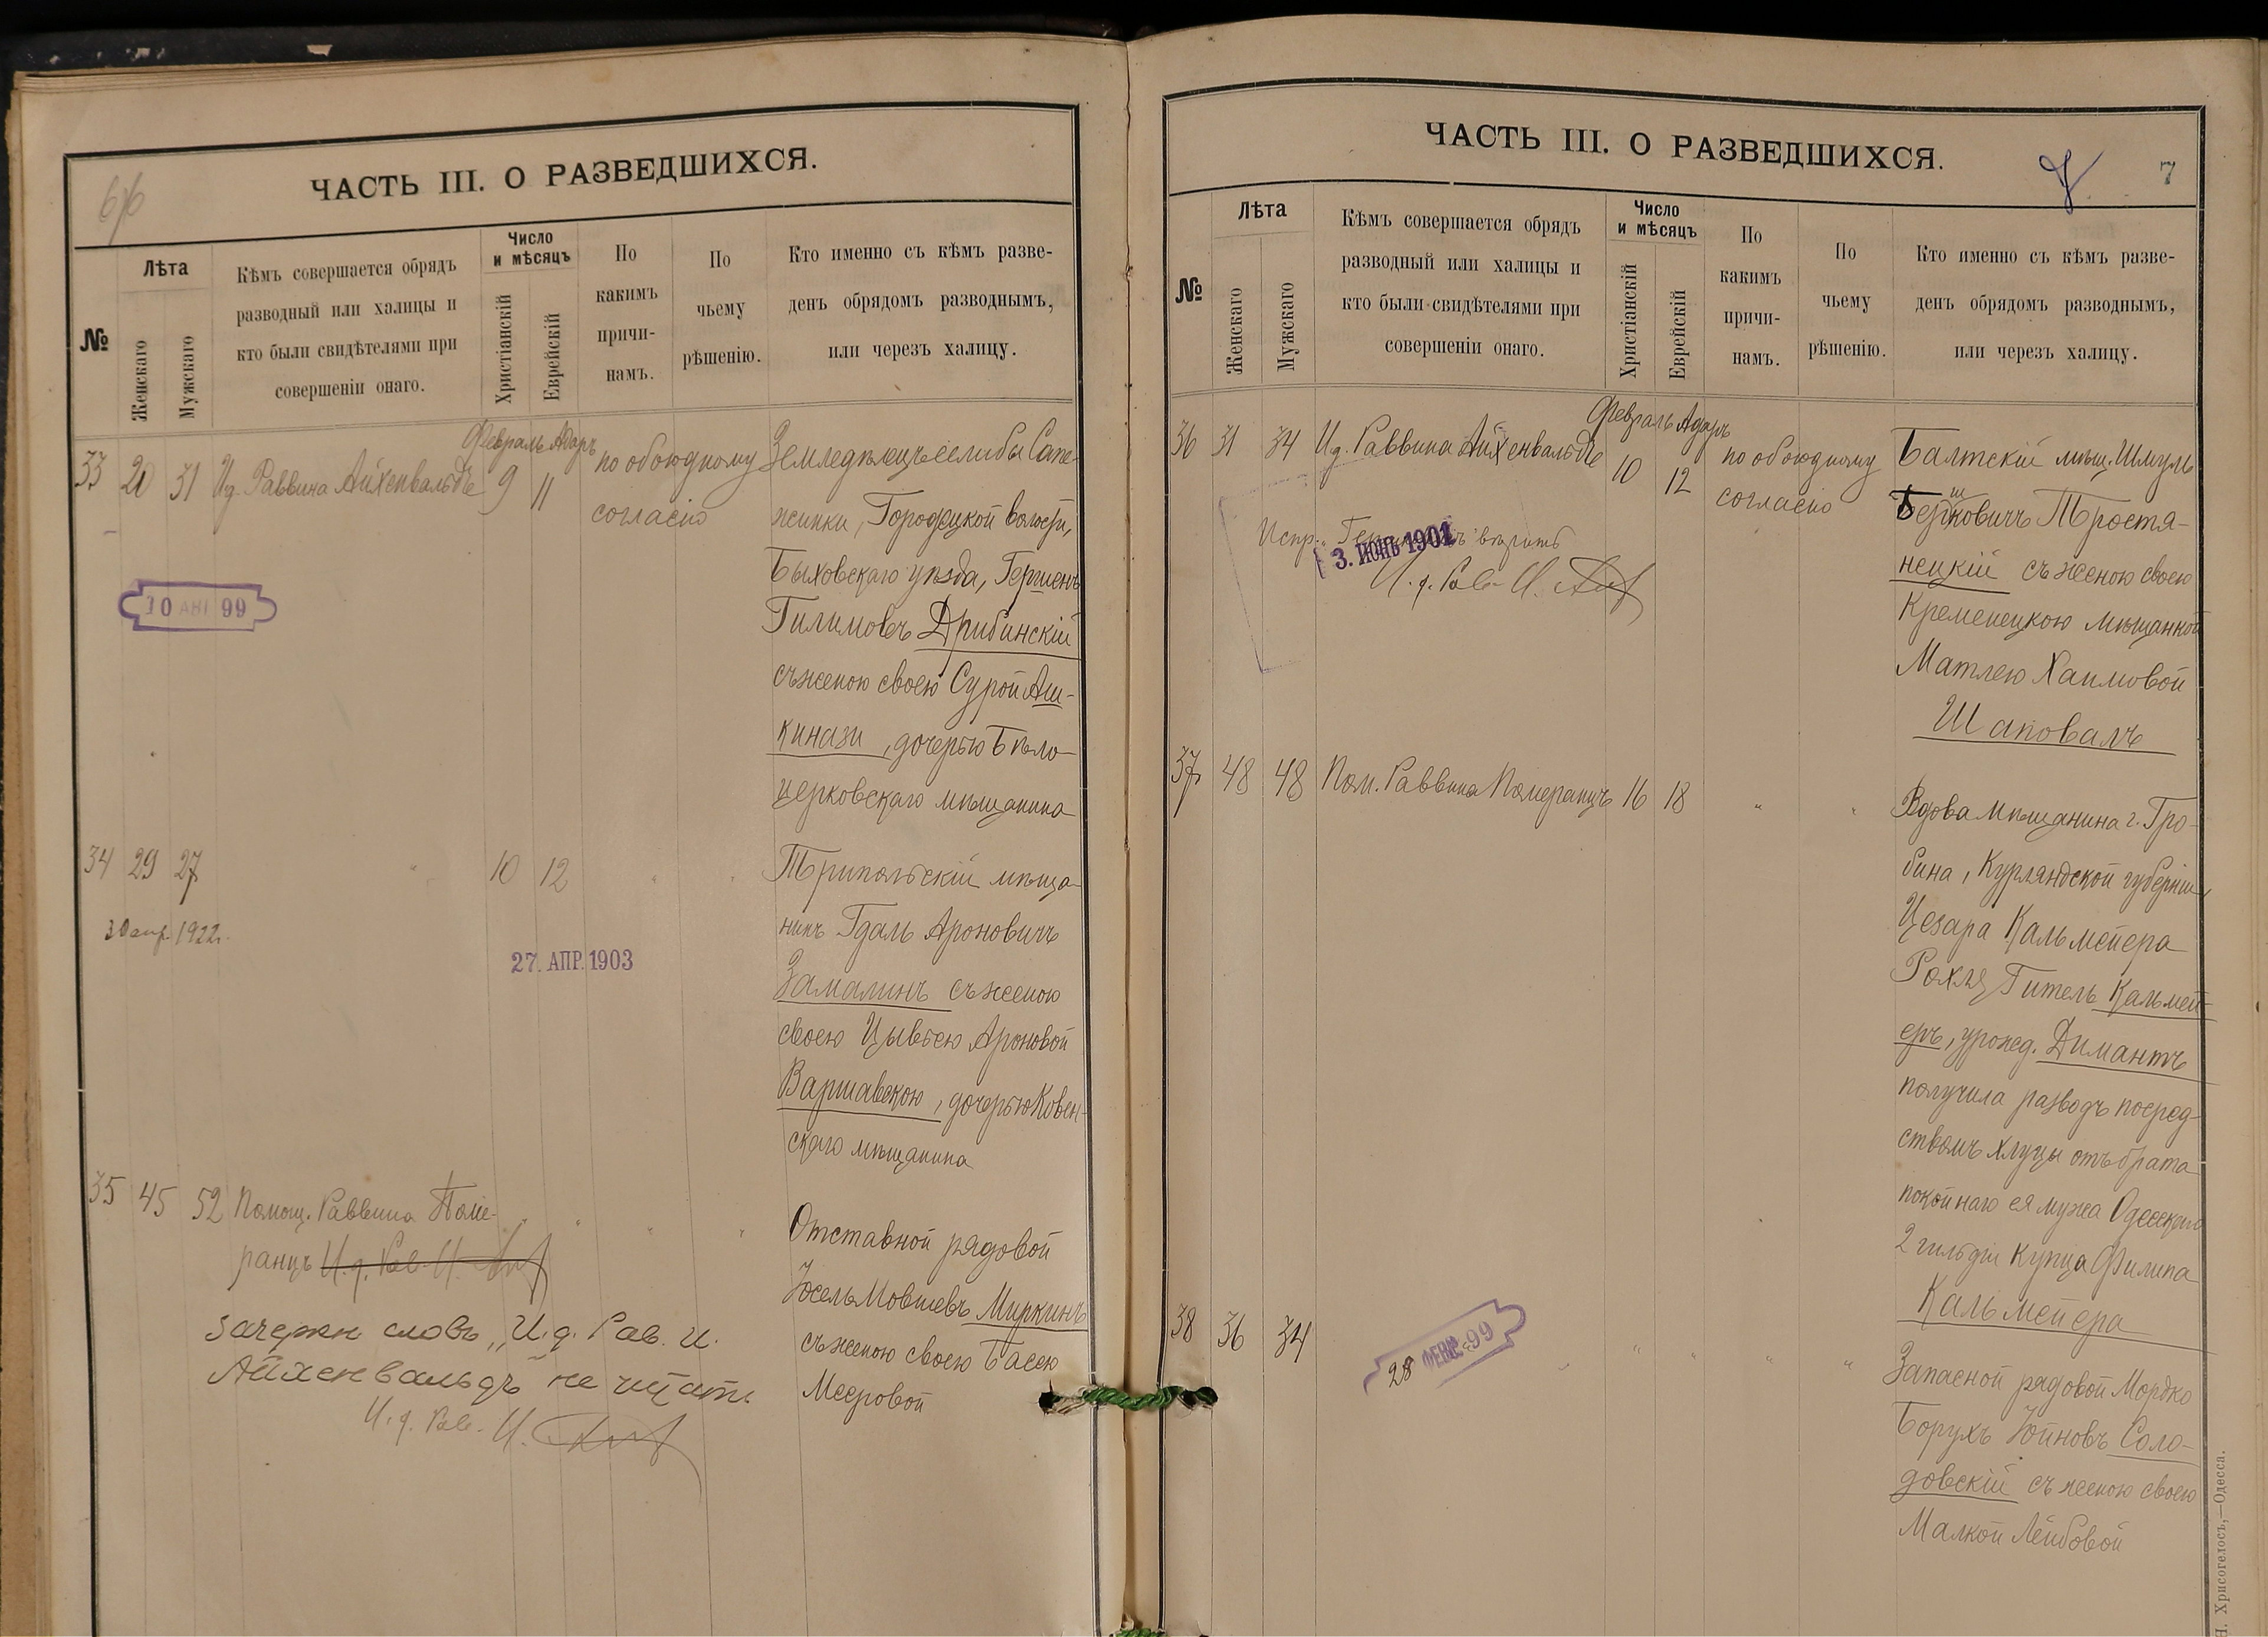 6/6
ЧАСТЬ III. О РАЗВЕДШИХСЯ.
№
Лѣта
Женскаго
Мужскаго
Кѣмъ совершается обрядъ
разводный или халицы и
кто были свидѣтелями при
совершеніи онаго.
Число
и мѣсяцъ
Христіанскій
Еврейскій
По
какимъ
причи-
намъ.
По
чьему
рѣшенію.
Кто именно съ кѣмъ разве-
денъ обрядомъ разводнымъ,
или черезъ халицу.
Февраль Адаръ
33 20 31 Ид. Раввина Айхенвальдъ 9 11 по обоюдному
согласію
Земледѣлецъ селибы Сапе-
жинки, Городецкой волости,
Быховскаго уѣзда, Гершенъ
Гилимовъ Дрибинскій
съ женою своею Сурой Аш-
кинази, дочерью Бѣло-
церковскаго мѣщанина
10 АВГ 99
34 29 27 " 10 12 " "
30 апр. 1922г.
27. АПР. 1903
Трипольскій мѣща-
нинъ Гдаль Ароновичъ
Замалинъ съ женою
своею Цывьею Ароновой
Варшавскою, дочерью Ковен-
скаго мѣщанина
35 45 52 Помощ. Раввина Поме-
ранцъ И. д. Рав. И.
" " " "
Отставной рядовой
Іосель Мовшевъ Миркинъ
съ женою своею Басею
Мееровой
Зачеркн словъ „И. д. Рав. И.
Айхенвальдъ" не читать
И. д. Рав. И.
ЧАСТЬ III. О РАЗВЕДШИХСЯ.
7
№
Лѣта
Женскаго
Мужскаго
Кѣмъ совершается обрядъ
разводный или халицы и
кто были свидѣтелями при
совершеніи онаго.
Число
и мѣсяцъ
Христіанскій
Еврейскій
По
какимъ
причи-
намъ.
По
чьему
рѣшенію.
Кто именно съ кѣмъ разве-
денъ обрядомъ разводнымъ,
или черезъ халицу.
Февраль Адаръ
36 31 34 Ид. Раввина Айхенвальдъ 10 12 по обоюдному
согласію
Балтскій мѣщ. Шмуль
Берковичъ Тростя-
нецкій съ женою своею
Кременецкою мѣщанкой
Матлею Хаимовой
Шаповалъ
Испр.
3. ИЮНЬ 1901
И. д. Рав. И.
37 48 48 Пом. Раввина Померанцъ 16 18 " "
Вдова мѣщанина г. Гро-
бина, Курляндской губерніи
Цезара Кальмейера
Рохля Гитель Кальмей-
еръ, урожд. Димантъ
получила разводъ посред-
ствомъ хлуцы отъ брата
покойнаго ея мужа Одесскаго
2 гильдіи купца Филипа
Кальмейера
38 36 34 " " " " "
28 ФЕВР. 99
Запасной рядовой Мордко
Борухъ Іойновъ Соло-
довскій съ женою своею
Малкой Лейбовой
Н. Хрисогелосъ,—Одесса.